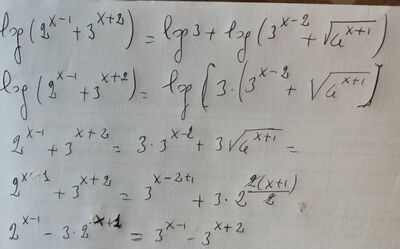 log(2^{x-1}+3^{x+2}) = log 3 + log(3^{x-2}+√(4^{x+1}))
log(2^{x-1}+3^{x+2}) = log[3·(3^{x-2}+√(4^{x+1})]
2^{x-1}+3^{x+2} = 3·3^{x-2}+3√(4^{x+1}) =
2^{x-1}+3^{x+2} = 3^{x-2+1}+3·2^{2(x+1)/2}
2^{x-1}-3·2^{x+1} = 3^{x-1}-3^{x+2}